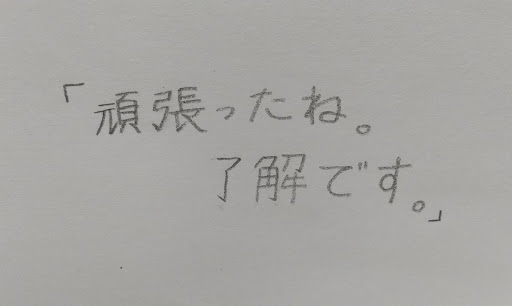 「頑張ったね。
了解です。」